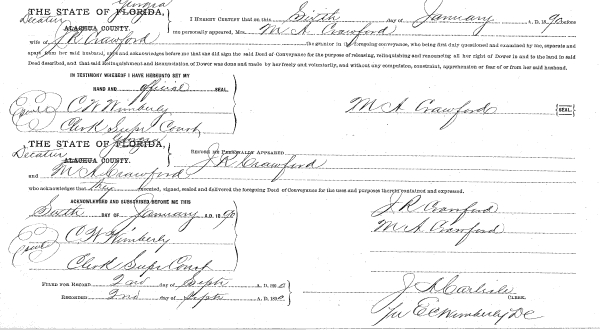 Georgia
THE STATE OF FLORIDA,
Decatur ALACHUA COUNTY.
I HEREBY CERTIFY that on this Sixth day of January A. D. 1890 before
me personally appeared, Mrs. M A Crawford
wife of J R Crawford the grantor in the foregoing conveyance, who being first duly questioned and examined by me, separate and
apart from her said husband, signed and acknowledges before me that she did sign the said Deed of Conveyance for the purpose of releasing, relinquishing and renouncing all her right of Dower in and to the land in said
Deed described, and that said Relinquishment and Renunciation of Dower was done and made by her freely and voluntarily, and without any compulsion, constraint, apprehension or fear of or from her said husband.
IN TESTIMONY WHEREOF I HAVE HEREUNTO SET MY
HAND AND official SEAL.
C W Wimberly
Clerk Supr Court
M A Crawford SEAL.
THE STATE OF FLORIDA,
Georgia
Decatur ALACHUA COUNTY.
BEFORE ME PERSONALLY APPEARED J R Crawford
and M A Crawford
who acknowledges that they executed, signed, sealed and delivered the foregoing Deed of Conveyance for the uses and purposes therein contained and expressed.
ACKNOWLEDGED AND SUBSCRIBED BEFORE ME THIS
Sixth DAY OF January A. D. 1890
C W Wimberly
Clerk Supr Court
J R Crawford
M A Crawford
FILED FOR RECORD 2nd day of Sept A. D. 1890
RECORDED 2nd day of Sept A. D. 1890
J A Carlisle
CLERK.
per E C Wimberly DC